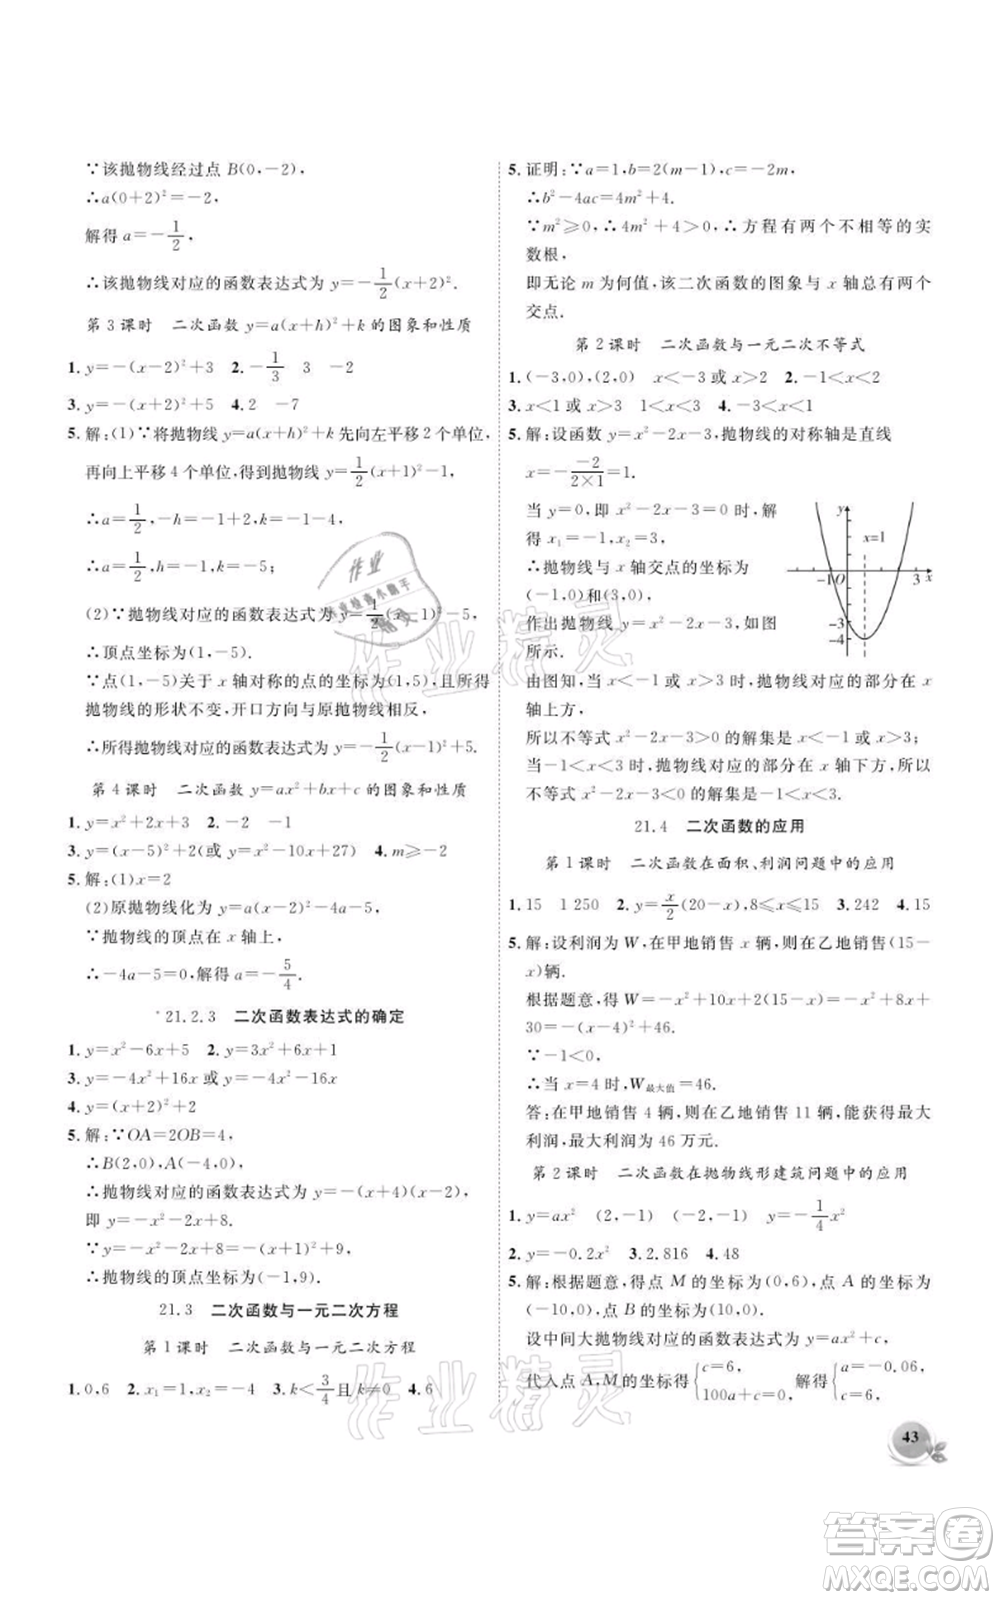 ∵该抛物线经过点 B(0,-2),
∴a(0+2)²=-2,
解得 a=-1/2,
∴该抛物线对应的函数表达式为 y=-1/2(x+2)².
第 3 课时 二次函数 y=a(x+h)²+k 的图象和性质
1. y=-(x-2)²+3 2. -1/3 3 -2
3. y=-(x+2)²+5 4. 2 -7
5. 解:(1)∵将抛物线 y=a(x+h)²+k 先向左平移 2 个单位,
再向上平移 4 个单位,得到抛物线 y=1/2(x+1)²-1,
∴a=1/2,-h=-1+2,k=-1-4,
∴a=1/2,h=-1,k=-5;
(2)∵抛物线对应的函数表达式为 y=1/2(x-1)²-5,
∴顶点坐标为(1,-5).
∵点(1,-5)关于 x 轴对称的点的坐标为(1,5),且所得
抛物线的形状不变,开口方向与原抛物线相反,
∴所得抛物线对应的函数表达式为 y=-1/2(x-1)²+5.
第 4 课时 二次函数 y=ax²+bx+c 的图象和性质
1. y=x²+2x+3 2. -2 -1
3. y=(x-5)²+2(或 y=x²-10x+27) 4. m≥-2
5. 解:(1)x=2
(2)原抛物线化为 y=(x-2)²-4a-5.
∵抛物线的顶点在 x 轴上,
∴-4a-5=0,解得 a=-5/4.
21.2.3 二次函数表达式的确定
1. y=x²-6x+5 2. y=3x²+6x+1
3. y=-4x²+16x 或 y=-4x²-16x
4. y=(x+2)²+2
5. 解:∵OA=2OB=4,
∴B(2,0),A(-4,0),
∴抛物线对应的函数表达式为 y=-(x+4)(x-2),
即 y=-x²-2x+8.
∵y=-x²-2x+8=-(x+1)²+9,
∴抛物线的顶点坐标为(-1,9).
21.3 二次函数与一元二次方程
第 1 课时 二次函数与一元二次方程
1. 0,6 2. x₁=1,x₂=-4 3. k<3/4且 k≠0 4. 6
5. 证明:∵a=1,b=2(m-1),c=-2m,
∴b²-4ac=4m²+4.
∵m²≥0,∴4m²+4>0,∴方程有两个不相等的实
数根,
即无论 m 为何值,该二次函数的图象与 x 轴总有两个
交点.
第 2 课时 二次函数与一元二次不等式
1. (-3,0),(2,0) x<-3 或 x>2 2. -1<x<2
3. x<1 或 x>3 1<x<3 4. -3<x<1
5. 解:设函数 y=x²-2x-3,抛物线的对称轴是直线
x=-(-2)/(2×1)=1.
当 y=0,即 x²-2x-3=0 时,解
得 x₁=-1,x₂=3,
∴抛物线与 x 轴交点的坐标为
(-1,0)和(3,0).
作出抛物线 y=x²-2x-3,如图
所示.
y
x=1
-1 O 3 x
-3
-4
由图知,当 x<-1 或 x>3 时,抛物线对应的部分在 x
轴上方,
所以不等式 x²-2x-3>0 的解集是 x<-1 或 x>3;
当-1<x<3 时,抛物线对应的部分在 x 轴下方,所以
不等式 x²-2x-3<0 的解集是-1<x<3.
21.4 二次函数的应用
第 1 课时 二次函数在面积、利润问题中的应用
1. 15 1 250 2. y=x/2(20-x),8≤x≤15 3. 242 4. 15
5. 解:设利润为 W,在甲地销售 x 辆,则在乙地销售(15-
x)辆.
根据题意,得 W=-x²+10x+2(15-x)=-x²+8x+
30=-(x-4)²+46.
∵-1<0,
∴当 x=4 时,W最大值=46.
答:在甲地销售 4 辆,则在乙地销售 11 辆,能获得最大
利润,最大利润为 46 万元.
第 2 课时 二次函数在抛物线形建筑问题中的应用
1. y=ax² (2,-1) (-2,-1) y=-1/4x²
2. y=-0.2x² 3. 2.816 4. 48
5. 解:根据题意,得点 M 的坐标为(0,6),点 A 的坐标为
(-10,0),点 B 的坐标为(10,0).
设中间大抛物线对应的函数表达式为 y=ax²+c,
代入点 A,M 的坐标得{c=6, 100a+c=0, 解得{a=-0.06, c=6,
43
作业精灵
作业精灵
答案圈
MXQE.COM